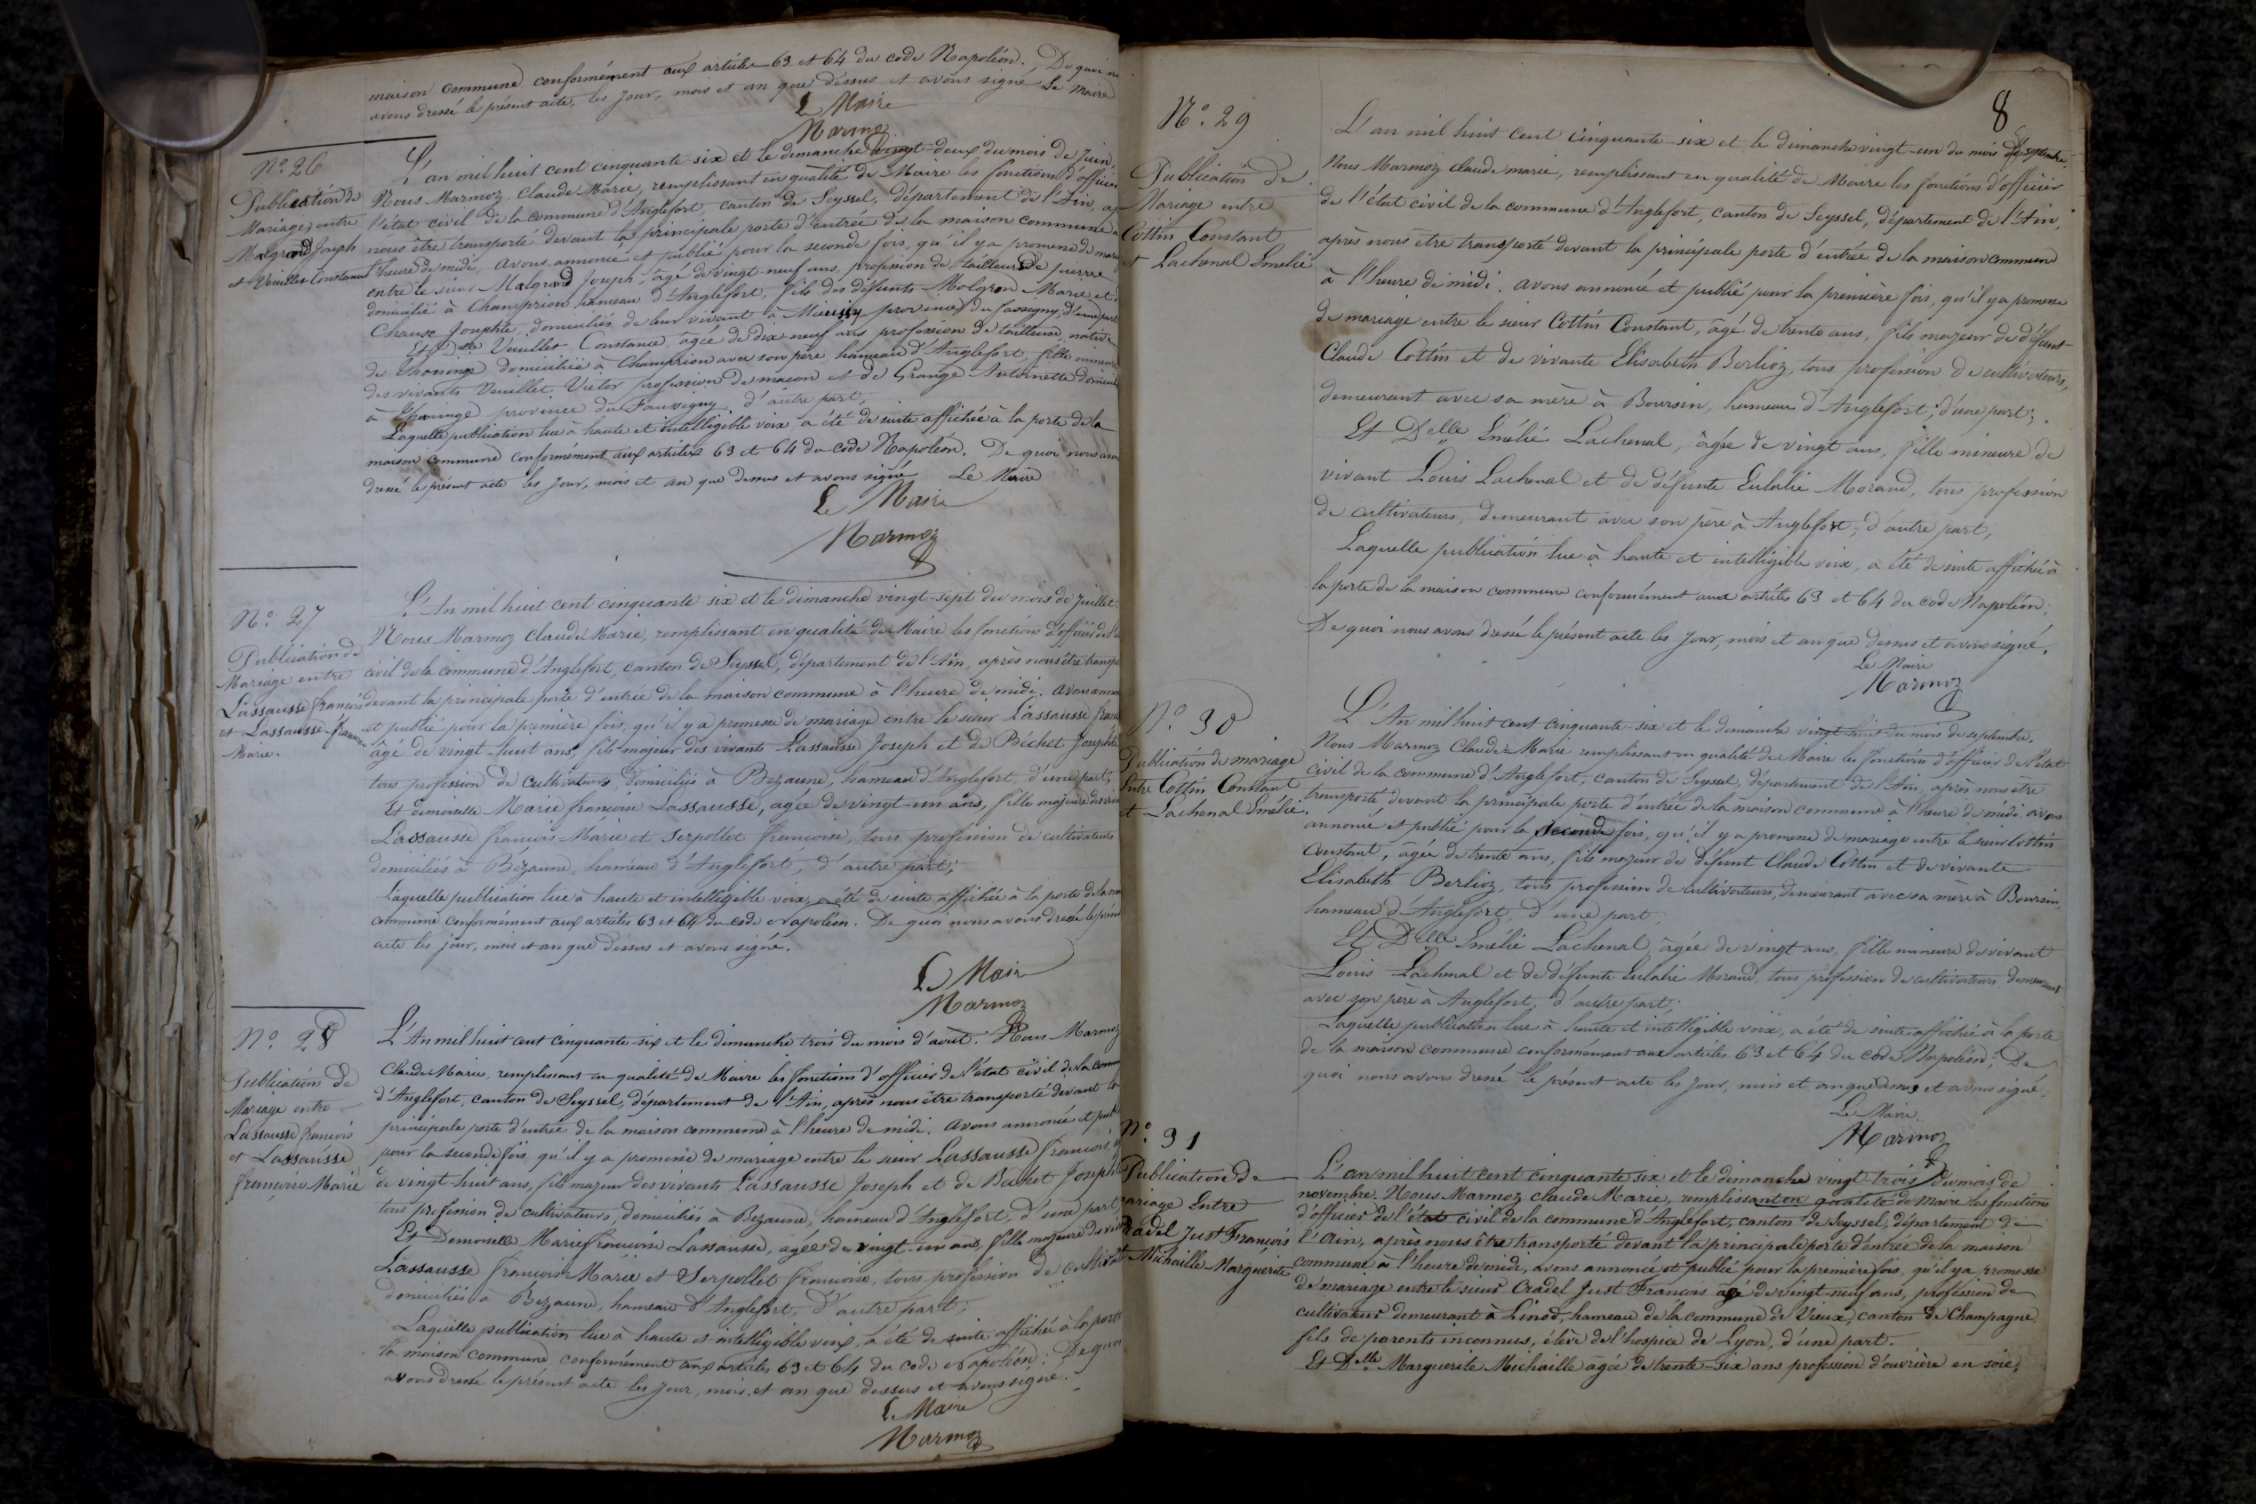 maison commune conformément aux articles 63 et 64 du code Napoléon. De quoi
avons dressé le présent acte, les jour, mois et an que dessus et avons signé Le Maire
Le Maire
Marmoz
N.o 26
Publication de
Mariage entre
Malgrand Joseph
et Veuillet Constance
L'an mil huit cent cinquante six et le dimanche vingt-deux du mois de Juin
Nous Marmoz Claude Marie, remplissant en qualité de Maire les fonctions d'officier
l'état civil de la commune d'Anglefort, canton de Seyssel, département de l'Ain,
nous être transporté devant la principale porte d'entrée de la maison commune
l'heure de midi, avons annoncé et publié pour la seconde fois, qu'il y a promesse de
entre le sieur Malgrand Joseph, âgé de vingt-neuf ans, profession de tailleur de pierre
domicilié à Champrion hameau d'Anglefort, fils des défunts Molgron Marie et
Josephte, domiciliés de leur vivant à province du fassigny, d'une part
Et Dlle Veuillet Constance, âgée de dix-neuf ans profession de tailleuse, native
de domiciliée à Champrion avec son père, hameau d'Anglefort, fille mineure
des vivants Veuillet Victor profession de maçon et de Grange Antoinette
à province du Fauvigny, d'autre part;
Laquelle publication lue à haute et intelligible voix a été de suite affichée à la porte de la
maison commune conformément aux articles 63 et 64 du code Napoléon. De quoi nous
dressé le présent acte les jour, mois et an que dessus et avons signé Le Maire
Le Maire
Marmoz
N.o 27
Publication de
Mariage entre
Lassausse françois
et Lassausse françoise
Marie.
L'An mil huit cent cinquante six et le dimanche vingt-sept du mois de Juillet
Nous Marmoz Claude Marie, remplissant en qualité de Maire les fonction d'officier de
civil de la commune d'Anglefort, canton de Seyssel, département de l'Ain, après nous être
devant la principale porte d'entrée de la maison commune à l'heure de midi. avons
et publié pour la première fois, qu'il y a promesse de mariage entre le sieur Lassausse
âgé de vingt-huit ans, fils majeur des vivants Lassausse Joseph et de Béchet Josephte
tous profession de cultivateurs domiciliés à Bezaune, hameau d'Anglefort, d'une part;
Et demoiselle Marie françoise Lassausse, âgée de vingt-un ans, fille majeure des
Lassausse françois-Marie et Serpollet françoise, tous profession de cultivateurs
domiciliés à Bezaune, hameau d'Anglefort, d'autre part;
Laquelle publication lue à haute et intelligible voix, a été de suite affichée à la porte de la
commune conformément aux articles 63 et 64 du code Napoléon. De quoi nous avons dressé le
acte les jour, mois et an que dessus et avons signé.
Le Maire
Marmoz
N.o 28
Publication de
Mariage entre
Lassausse françois
et Lassausse
françoise Marie
L'An mil huit cent cinquante-six et le dimanche trois du mois d'août. Nous Marmoz
Claude Marie, remplissant en qualité de Maire les fonctions d'officier de l'état civil de la
d'Anglefort, canton de Seyssel, département de l'Ain, après nous être transporté devant la
principale porte d'entrée de la maison commune à l'heure de midi. avons annoncé et
pour la seconde fois, qu'il y a promesse de mariage entre le sieur Lassausse françois,
de vingt-huit ans, fils majeur des vivants Lassausse Joseph et de Bechet
tous profession de cultivateurs, domiciliés à Bezaune, hameau d'Anglefort, d'une part
Et Demoiselle Marie françoise Lassausse, âgée de vingt-un ans, fille majeure des
Lassausse françois-Marie et Serpollet françoise, tous profession de
domiciliés à Bezaune, hameau d'Anglefort, d'autre part;
Laquelle publication lue à haute et intelligible voix, a été de suite affichée à la porte
la maison commune conformément aux articles 63 et 64 du code Napoléon: De quoi
avons dressé le présent acte les jour, mois et an que dessus et avons signé.
Le Maire
Marmoz
8
N.o 29
Publication de
Mariage entre
Cottin Constant
et Lachenal Emélie
L'an mil huit cent cinquante-six et le dimanche vingt-un du mois de septembre.
Nous Marmoz Claude marie, remplissant en qualité de Maire les fonctions d'officier
de l'état civil de la commune d'Anglefort, canton de Seyssel, département de l'Ain,
après nous être transporté devant la principale porte d'entrée de la maison commune
à l'heure de midi. avons annoncé et publié pour la première fois, qu'il y a promesse
de mariage entre le sieur Cottin Constant, âgé de trente ans, fils majeur de défunt
Claude Cottin et de vivante Elisabeth Berlioz, tous profession de cultivateurs,
demeurant avec sa mère à Boursin, hameau d'Anglefort; d'une part;
Et Delle Emélie Lachenal, âgée de vingt ans, fille mineure de
vivant Louis Lachenal et de défunte Eulalie Morand, tous profession
de cultivateurs, demeurant avec son père à Anglefort; d'autre part,
Laquelle publication lue à haute et intelligible voix, a été de suite affichée à
la porte de la maison commune conformément aux articles 63 et 64 du code Napoléon:
De quoi nous avons dressé le présent acte les jour, mois et an que dessus et avons signé.
Le Maire
Marmoz
N.o 30
Publication de mariage
Entre Cottin Constant
et Lachenal Emélie.
L'An mil huit cent cinquante-six et le dimanche vingt-huit du mois de septembre.
Nous Marmoz Claude-Marie remplissant en qualité de Maire les fonctions d'officier de l'état
civil de la commune d'Anglefort, canton de Seyssel, département de l'Ain, après nous être
transporté devant la principale porte d'entrée de la maison commune à l'heure de midi avons
annoncé et publié pour la seconde fois, qu'il y a promesse de mariage entre le sieur Cottin
constant, âgée de trente ans, fils majeur de défunt Claude Cottin et de vivante
Elisabeth Berlioz, tous profession de cultivateurs, demeurant avec sa mère à Boursin,
hameau d'Anglefort, d'une part;
Et Delle Emélie Lachenal, âgée de vingt ans, fille mineure de vivant
Louis Lachenal et de défunte Eulalie Morand, tous profession de cultivateurs demeurant
avec son père à Anglefort, d'autre part;
Laquelle publication lue à haute et intelligible voix, a été de suite affichée à la porte
de la maison commune conformément aux articles 63 et 64 du code Napoléon; De
quoi nous avons dressé le présent acte les jour, mois et an que dessus et avons signé.
Le Maire.
Marmoz
N.o 31
Publication de
ariage Entre
radel Just François
Michaille Marguerite
L'an mil huit cent cinquante six et le dimanche vingt-trois du mois de
novembre. Nous Marmoz Claude Marie, remplissant en qualité de Maire les fonctions
d'officier de l'état civil de la commune d'Anglefort, canton de Seyssel, département de
l'Ain, après nous être transporté devant la principale porte d'entrée de la maison
commune à l'heure de midi, avons annoncé et publié pour la première fois, qu'il y a promesse
de mariage entre le sieur Cradel Just François âgé de vingt-neuf ans, profession de
cultivateur demeurant à Linod, hameau de la commune de Vieux, canton de Champagne
fils de parents inconnus, élève de l'hospice de Lyon, d'une part.
Et Delle Marguerite Michaille âgée de trente-six ans profession d'ouvrière en soie,